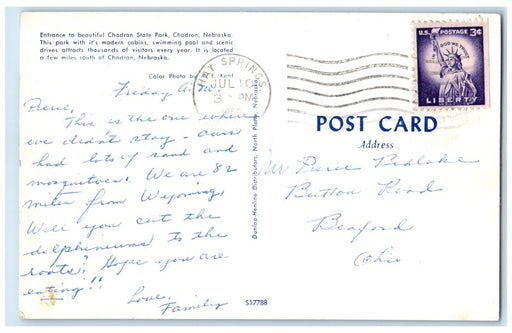 Entrance to beautiful Chadron State Park, Chadron, Nebraska.
This park with it's modern cabins, swimming pool and scenic
drives attracts thousands of visitors every year. It is located
a few miles south of Chadron, Nebraska.
Color Photo by Kent
Friday A.M.
Pierre,
This is the one where
we didn't stay - ours
had lots of sand and
mosquitoes. We are 82
miles from Wyoming.
Will you cut the
delpheniums to the
roots? Hope you are
eating!!
Love,
Family
S17788
Dunlap-Henline Distributors, North Platte, Nebraska
HAY SPRINGS
JUL 10
3 PM
U.S. POSTAGE 3¢
IN GOD WE TRUST
LIBERTY
POST CARD
Address
Mr Pierre Bedlake
Button Road
Bedford
Ohio